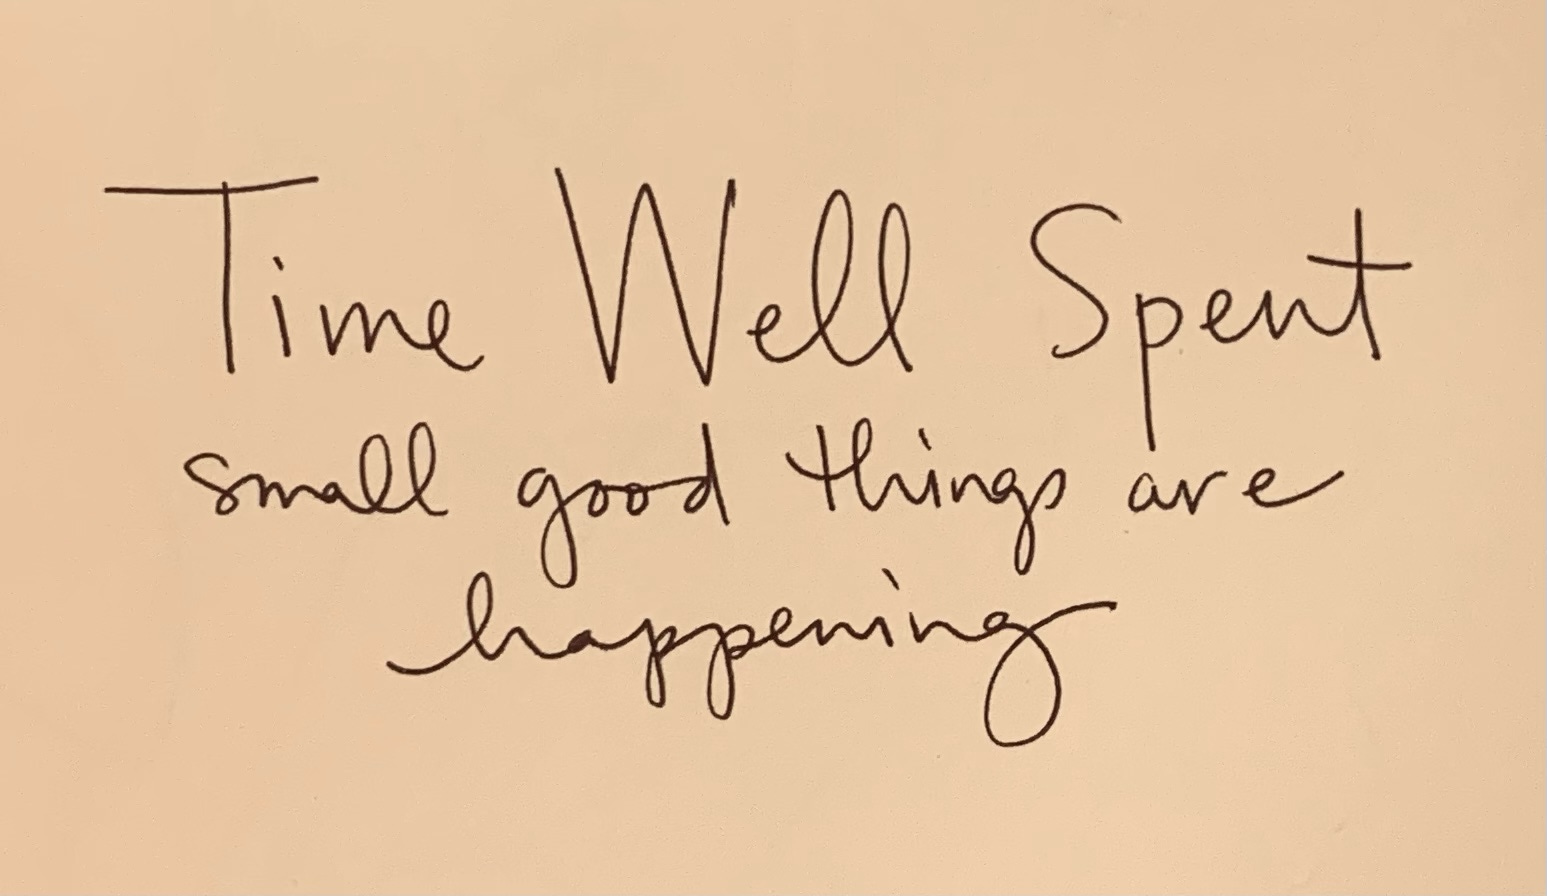 Time Well Spent
small good things are
happening